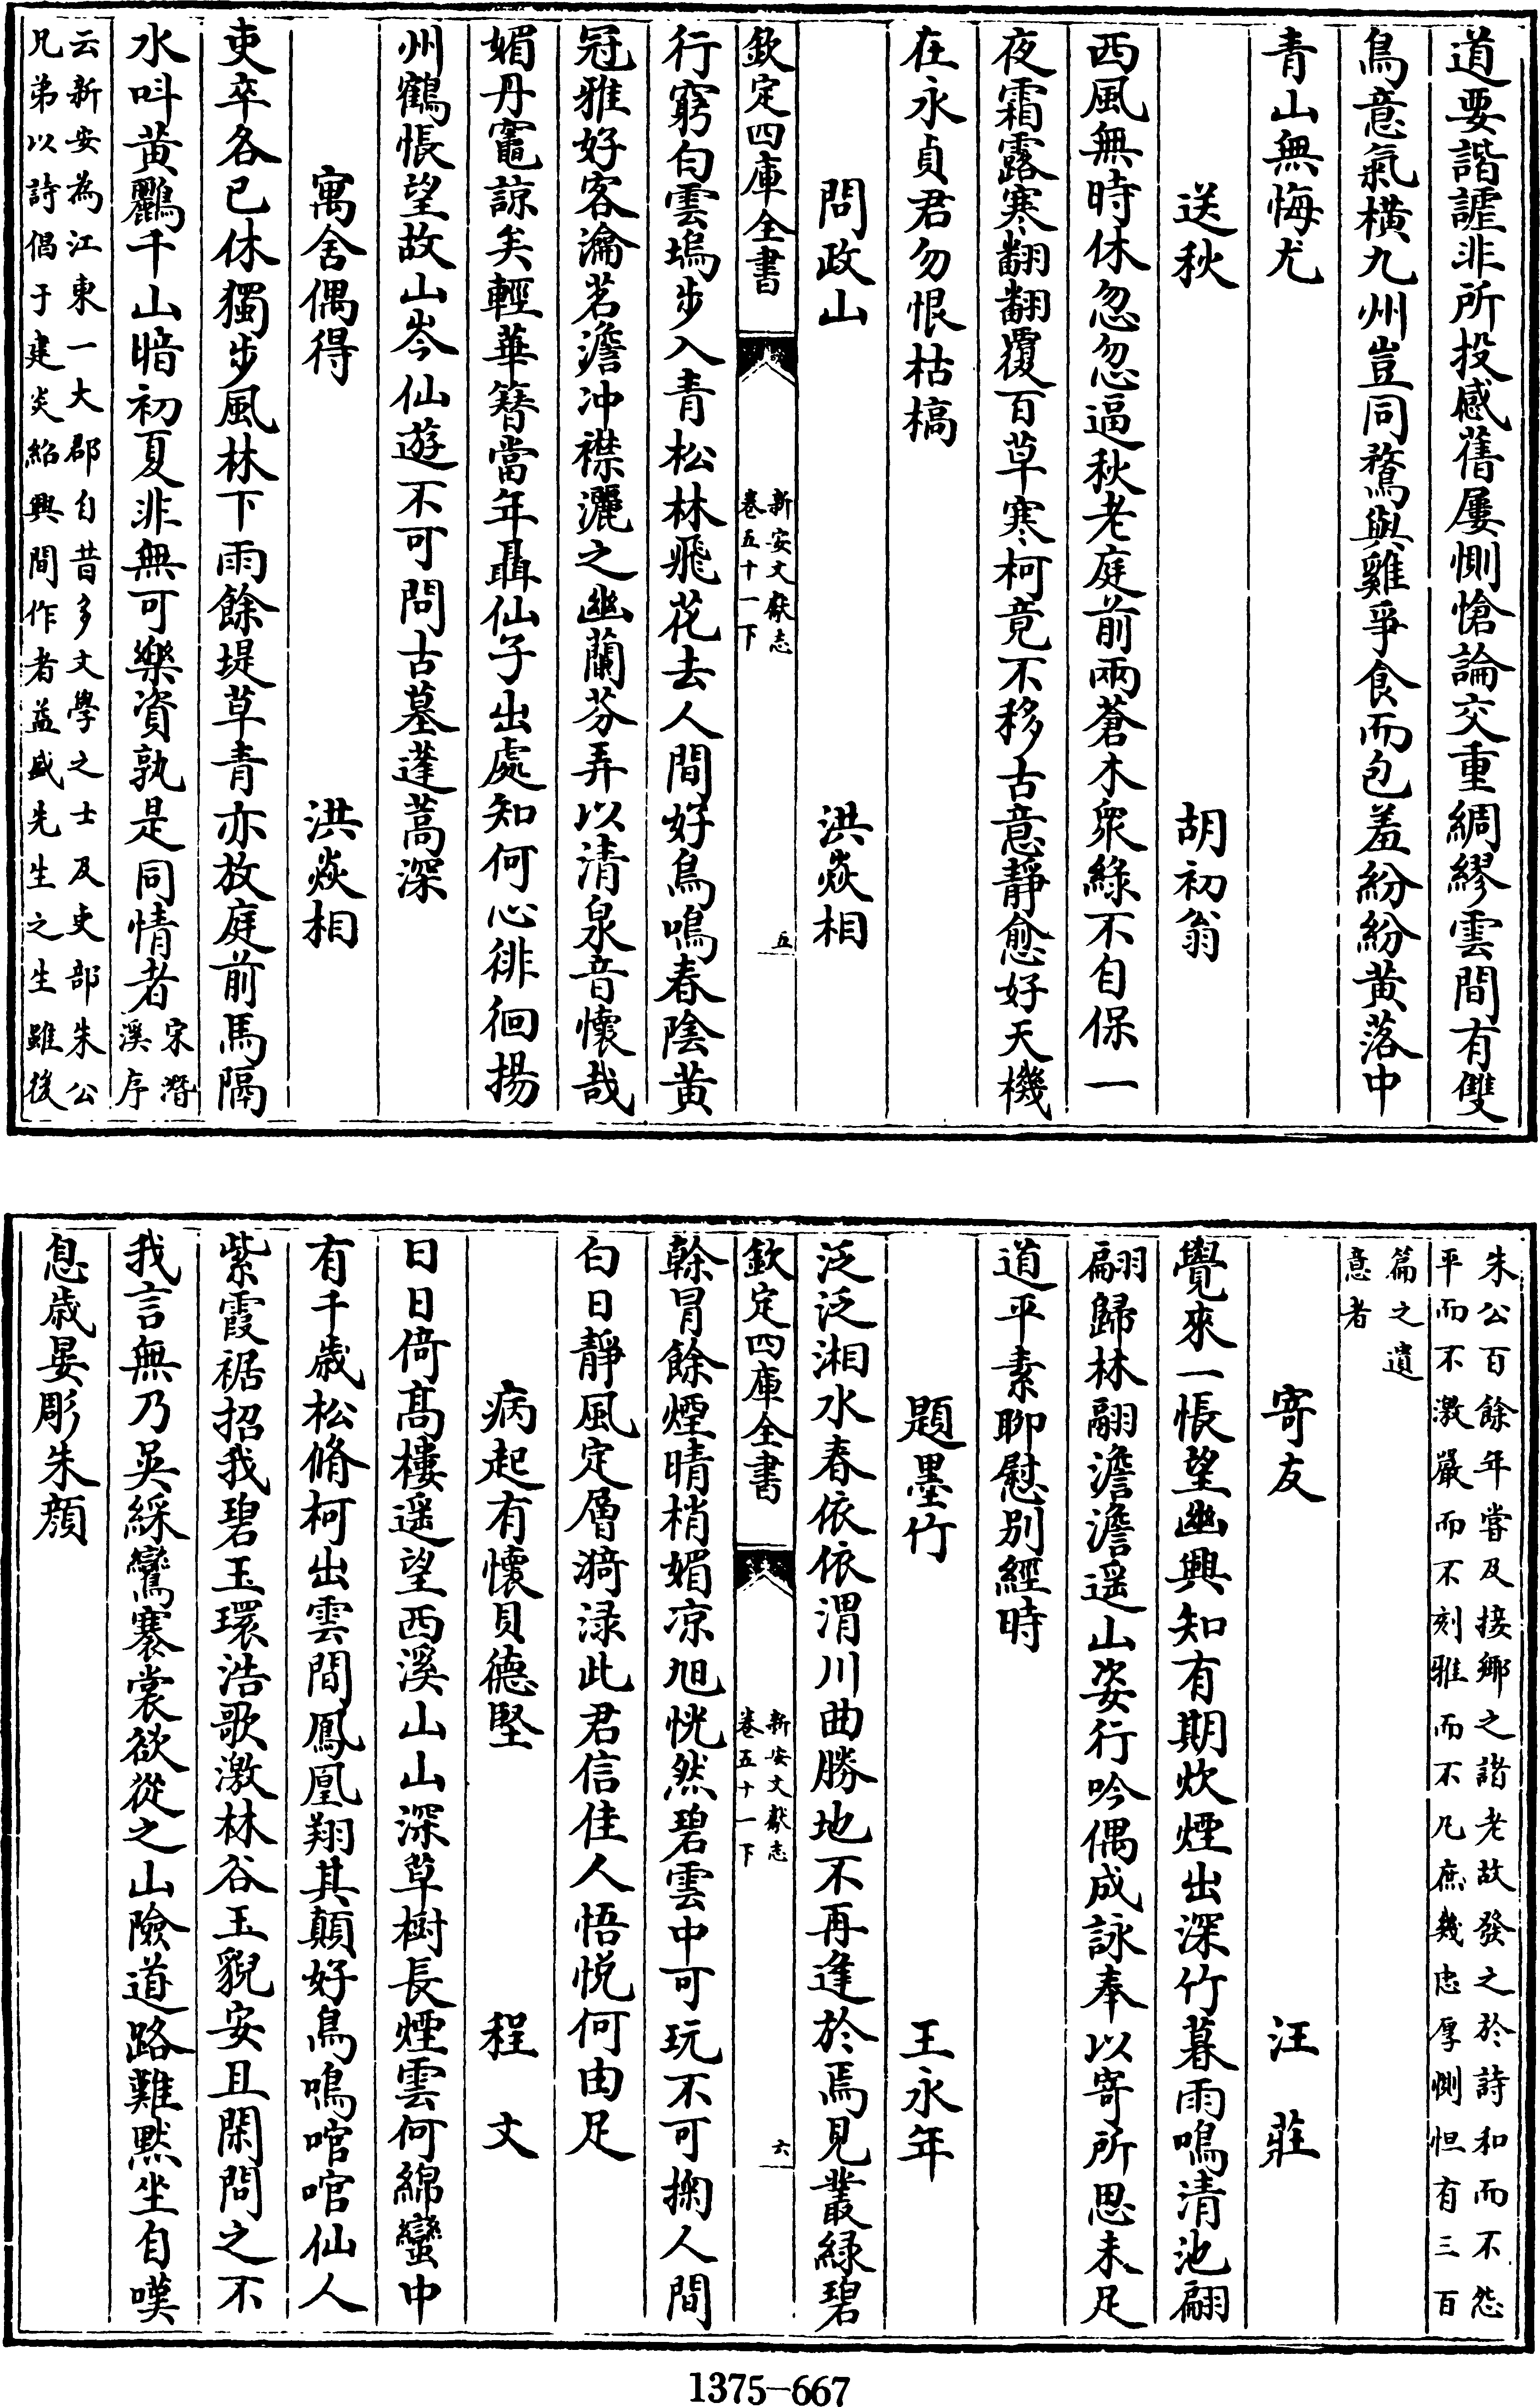 道要諧謔非所投感舊屢惻愴論交重綢繆雲間有雙
鳥意氣橫九州豈同鶩與雞爭食而包羞紛紛黄落中
青山無悔尤
送秋
胡初翁
西風無時休忽忽逼秋老庭前兩蒼木衆綠不自保一
夜霜露寒翻翻覆百草寒柯竟不移古意靜愈好天機
在永貞君勿恨枯槁
問政山
洪焱相
欽定四庫全書
新安文獻志
卷五十一下
五
行窮白雲塢步入青松林飛花去人間好鳥鳴春陰黄
冠雅好客瀹茗澹沖襟灑之幽蘭芬弄以清泉音懷哉
媚丹竈諒矣輕華簪當年聶仙子出處知何心徘徊揚
州鶴悵望故山岑仙遊不可問古墓蓬蒿深
寓舍偶得
洪焱相
吏卒各已休獨步風林下雨餘堤草青亦放庭前馬隔
水呌黄鸝千山暗初夏非無可樂資孰是同情者
宋潛
溪序
云新安為江東一大郡自昔多文學之士及吏部朱公
兄弟以詩倡于建炎紹興間作者益盛先生之生雖後
朱公百餘年嘗及接鄉之諸老故發之於詩和而不怨
平而不激嚴而不刻雅而不凡庶幾忠厚惻怛有三百
篇之遺
意者
寄友
汪莊
覺來一悵望幽興知有期炊煙出深竹暮雨鳴清池翩
翩歸林翮澹澹遥山姿行吟偶成詠奉以寄所思未足
道平素聊慰别經時
題墨竹
王永年
泛泛湘水春依依渭川曲勝地不再逢於焉見叢緑碧
欽定四庫全書
新安文獻志
卷五十一下
六
榦冐餘煙晴梢媚凉旭恍然碧雲中可玩不可掬人間
白日靜風定層漪渌此君信佳人悟悦何由足
病起有懷貝德堅
程文
日日倚髙樓遥望西溪山山深草樹長煙雲何綿蠻中
有千歲松脩柯出雲間鳳凰翔其顛好鳥鳴喧喧仙人
紫霞裾招我碧玉環浩歌激林谷玉貌安且閑問之不
我言無乃吳綵鸞褰裳欲從之山險道路難黙坐自嘆
息歲晏彫朱顔
1375-667